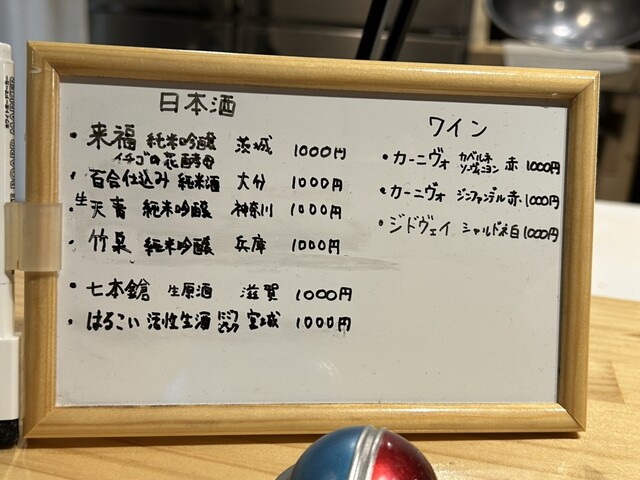 日本酒
・来福 純米吟醸 茨城 1000円
イチゴの花酵母
・百合仕込み 純米酒 大分 1000円
・生 天青 純米吟醸 神奈川 1000円
・竹泉 純米吟醸 兵庫 1000円
・七本鎗 生原酒 滋賀 1000円
・はるこい 活性生酒 宮城 1000円
ワイン
・カーニヴォ カベルネ ソーヴィニヨン 赤 1000円
・カーニヴォ ジンファンデル 赤 1000円
・ジドヴェイ シャルドネ 白 1000円